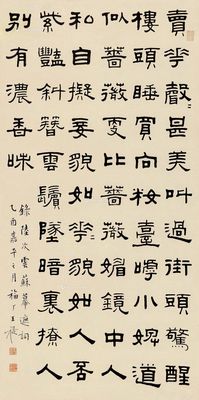 賣華聲甚美叫過街頭驚醒
樓頭睡買向妝臺嗔小婢道
似薔薇更比薔薇媚鏡中人
和自擬妾貌如華如人否
紫豔斜簪雲鬢墜暗裏撩人
別有濃香味
錄陸次雲蘇幕遮詞
乙酉嘉平之月福厂王禔